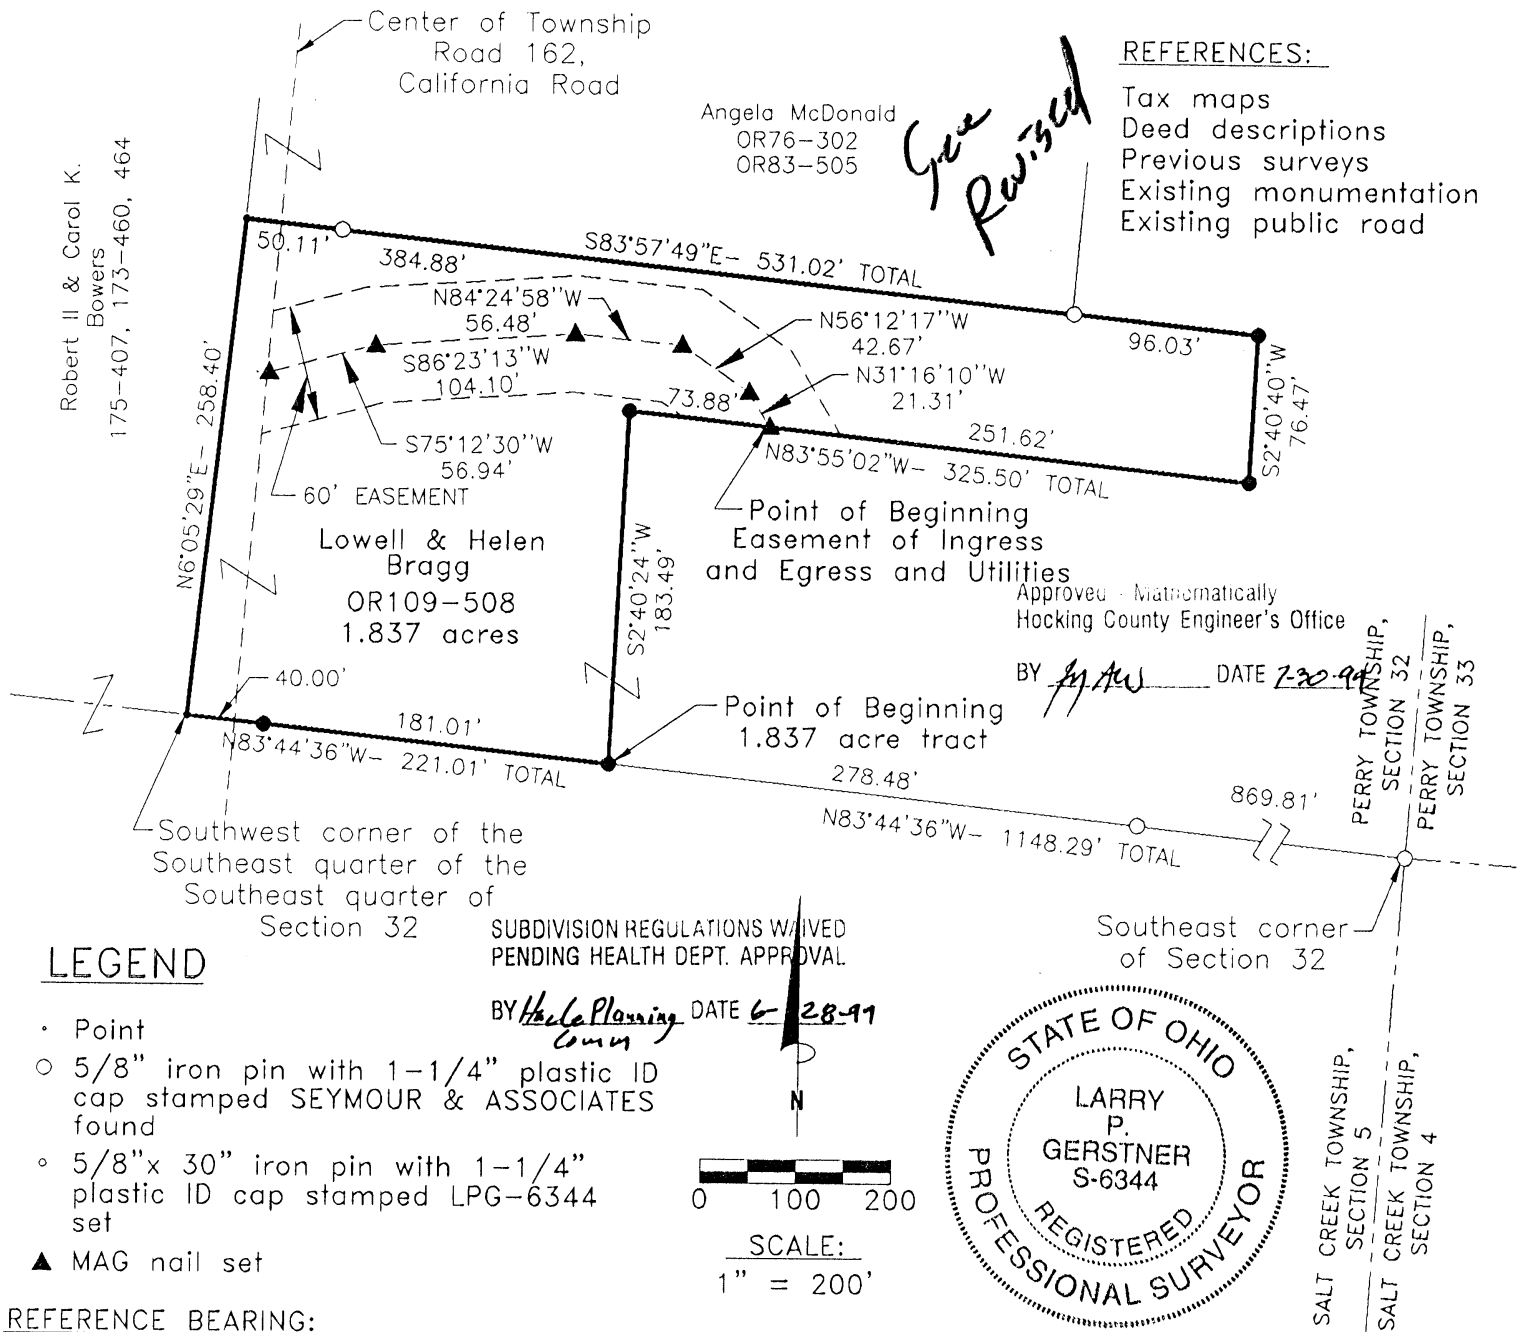 Center of Township
Road 162,
California Road
Angela McDonald
OR76-302
OR83-505
Revised
REFERENCES:
Tax maps
Deed descriptions
Previous surveys
Existing monumentation
Existing public road
Robert II & Carol K.
Bowers
175-407, 173-460, 464
50.11'
384.88'
S83°57'49"E- 531.02' TOTAL
96.03'
N84°24'58"W
56.48'
N56°12'17"W
42.67'
S86°23'13"W
104.10'
N31°16'10"W
21.31'
73.88'
251.62'
N83°55'02"W- 325.50' TOTAL
S2°40'40"W
76.47'
N6°05'29"E- 258.40'
S75°12'30"W
56.94'
60' EASEMENT
Point of Beginning
Easement of Ingress
and Egress and Utilities
Lowell & Helen
Bragg
OR109-508
1.837 acres
S2°40'24"W
183.49'
Approved - Mathematically
Hocking County Engineer's Office
BY DATE 7-30-99
PERRY TOWNSHIP,
SECTION 32
PERRY TOWNSHIP,
SECTION 33
40.00'
181.01'
N83°44'36"W- 221.01' TOTAL
Point of Beginning
1.837 acre tract
278.48'
869.81'
N83°44'36"W- 1148.29' TOTAL
Southwest corner of the
Southeast quarter of the
Southeast quarter of
Section 32
SUBDIVISION REGULATIONS WAIVED
PENDING HEALTH DEPT. APPROVAL
BY Planning DATE 6-28-99
Comm
Southeast corner
of Section 32
LEGEND
Point
5/8" iron pin with 1-1/4" plastic ID
cap stamped SEYMOUR & ASSOCIATES
found
5/8"x 30" iron pin with 1-1/4"
plastic ID cap stamped LPG-6344
set
MAG nail set
N
0 100 200
SCALE:
1" = 200'
STATE OF OHIO
LARRY
P.
GERSTNER
S-6344
REGISTERED
PROFESSIONAL SURVEYOR
SALT CREEK TOWNSHIP,
SECTION 5
SALT CREEK TOWNSHIP,
SECTION 4
REFERENCE BEARING: